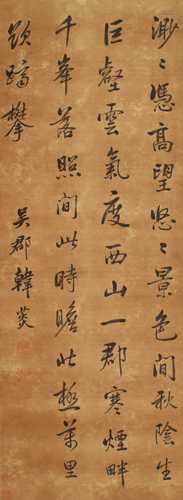 渺〻憑高望悠〻景色間秋陰生
巨壑雲氣度西山一郡寒煙畔
千峯落照間此時瞻此極萬里
欲躋攀
吳郡韓菼